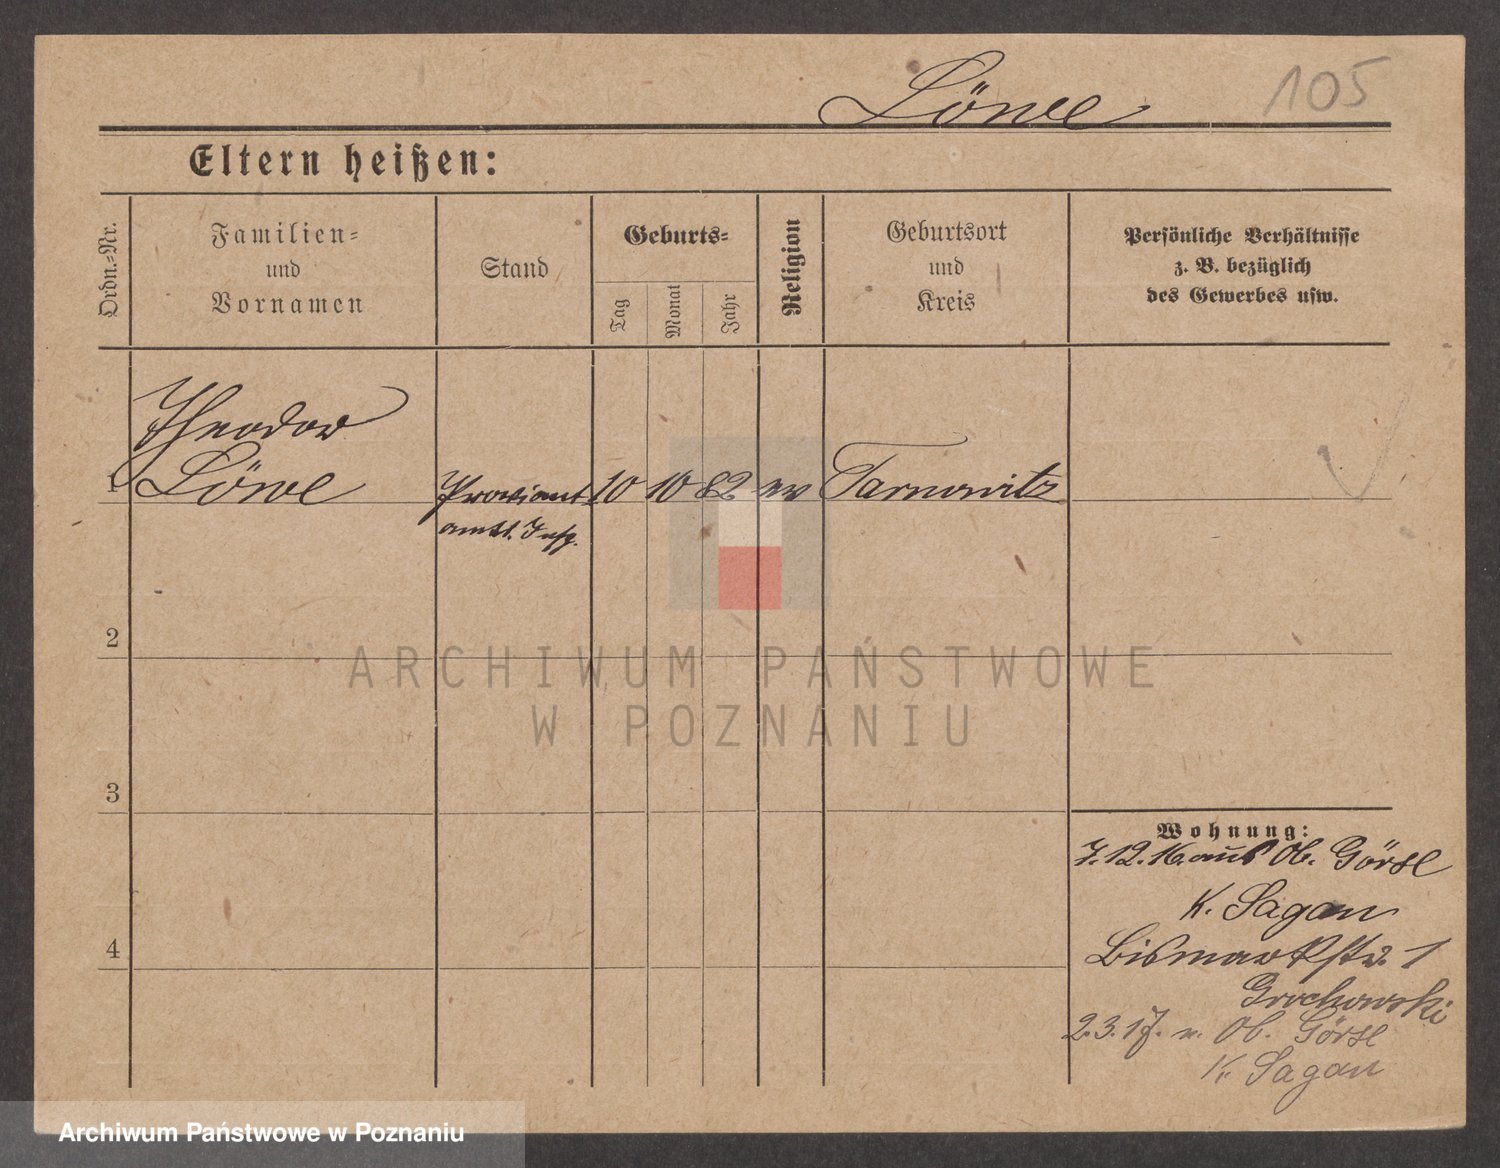 Löwe
105
Eltern heißen:
Ordn.-Nr.
Familien-
und
Vornamen
Stand
Geburts-
Tag
Monat
Jahr
Religion
Geburtsort
und
Kreis
Persönliche Verhältnisse
z. B. bezüglich
des Gewerbes usw.
Theodor
1 Löwe Proviant 10 10 82 ev Tarnowitz
amts. Insp.
2
ARCHIWUM PAŃSTWOWE
W POZNANIU
3
Wohnung:
7.12.16. aus Ob. Görse
K. Sagan
4
Bismarkstr. 1
Grochowski
2.3.17. n. Ob. Görse
K. Sagan
Archiwum Państwowe w Poznaniu